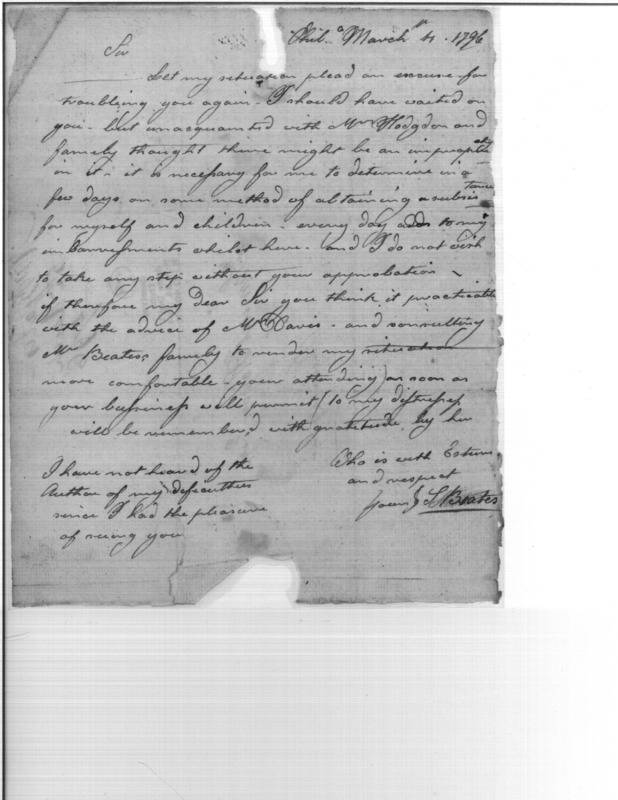 Phila March 4th 1796
Sir
Let my situation plead an excuse for
troubling you again - I should have waited on
you - but unacquanted with Mrs Hodgdon and
famely thought there might be an impropriety
in it - it is necessary for me to determine in a
few days on some method of abtaining a subsistance
for myself and children - every day adds to my
imbarressments whilst here - and I do not wish
to take any step without your approbation -
if therefore my dear Sir you think it practicable
with the advice of Mr Davis - and consulting
Mr Beates, famely to render my situation
more comfortable - your attending (as soon as
your bussiness will permit) to my distresses
will be remember'd with gratitude by her
Who is with Esteem
and respect
yours S Beates
I have not heard of the
Author of my difeculties
since I had the pleasure
of seeing you